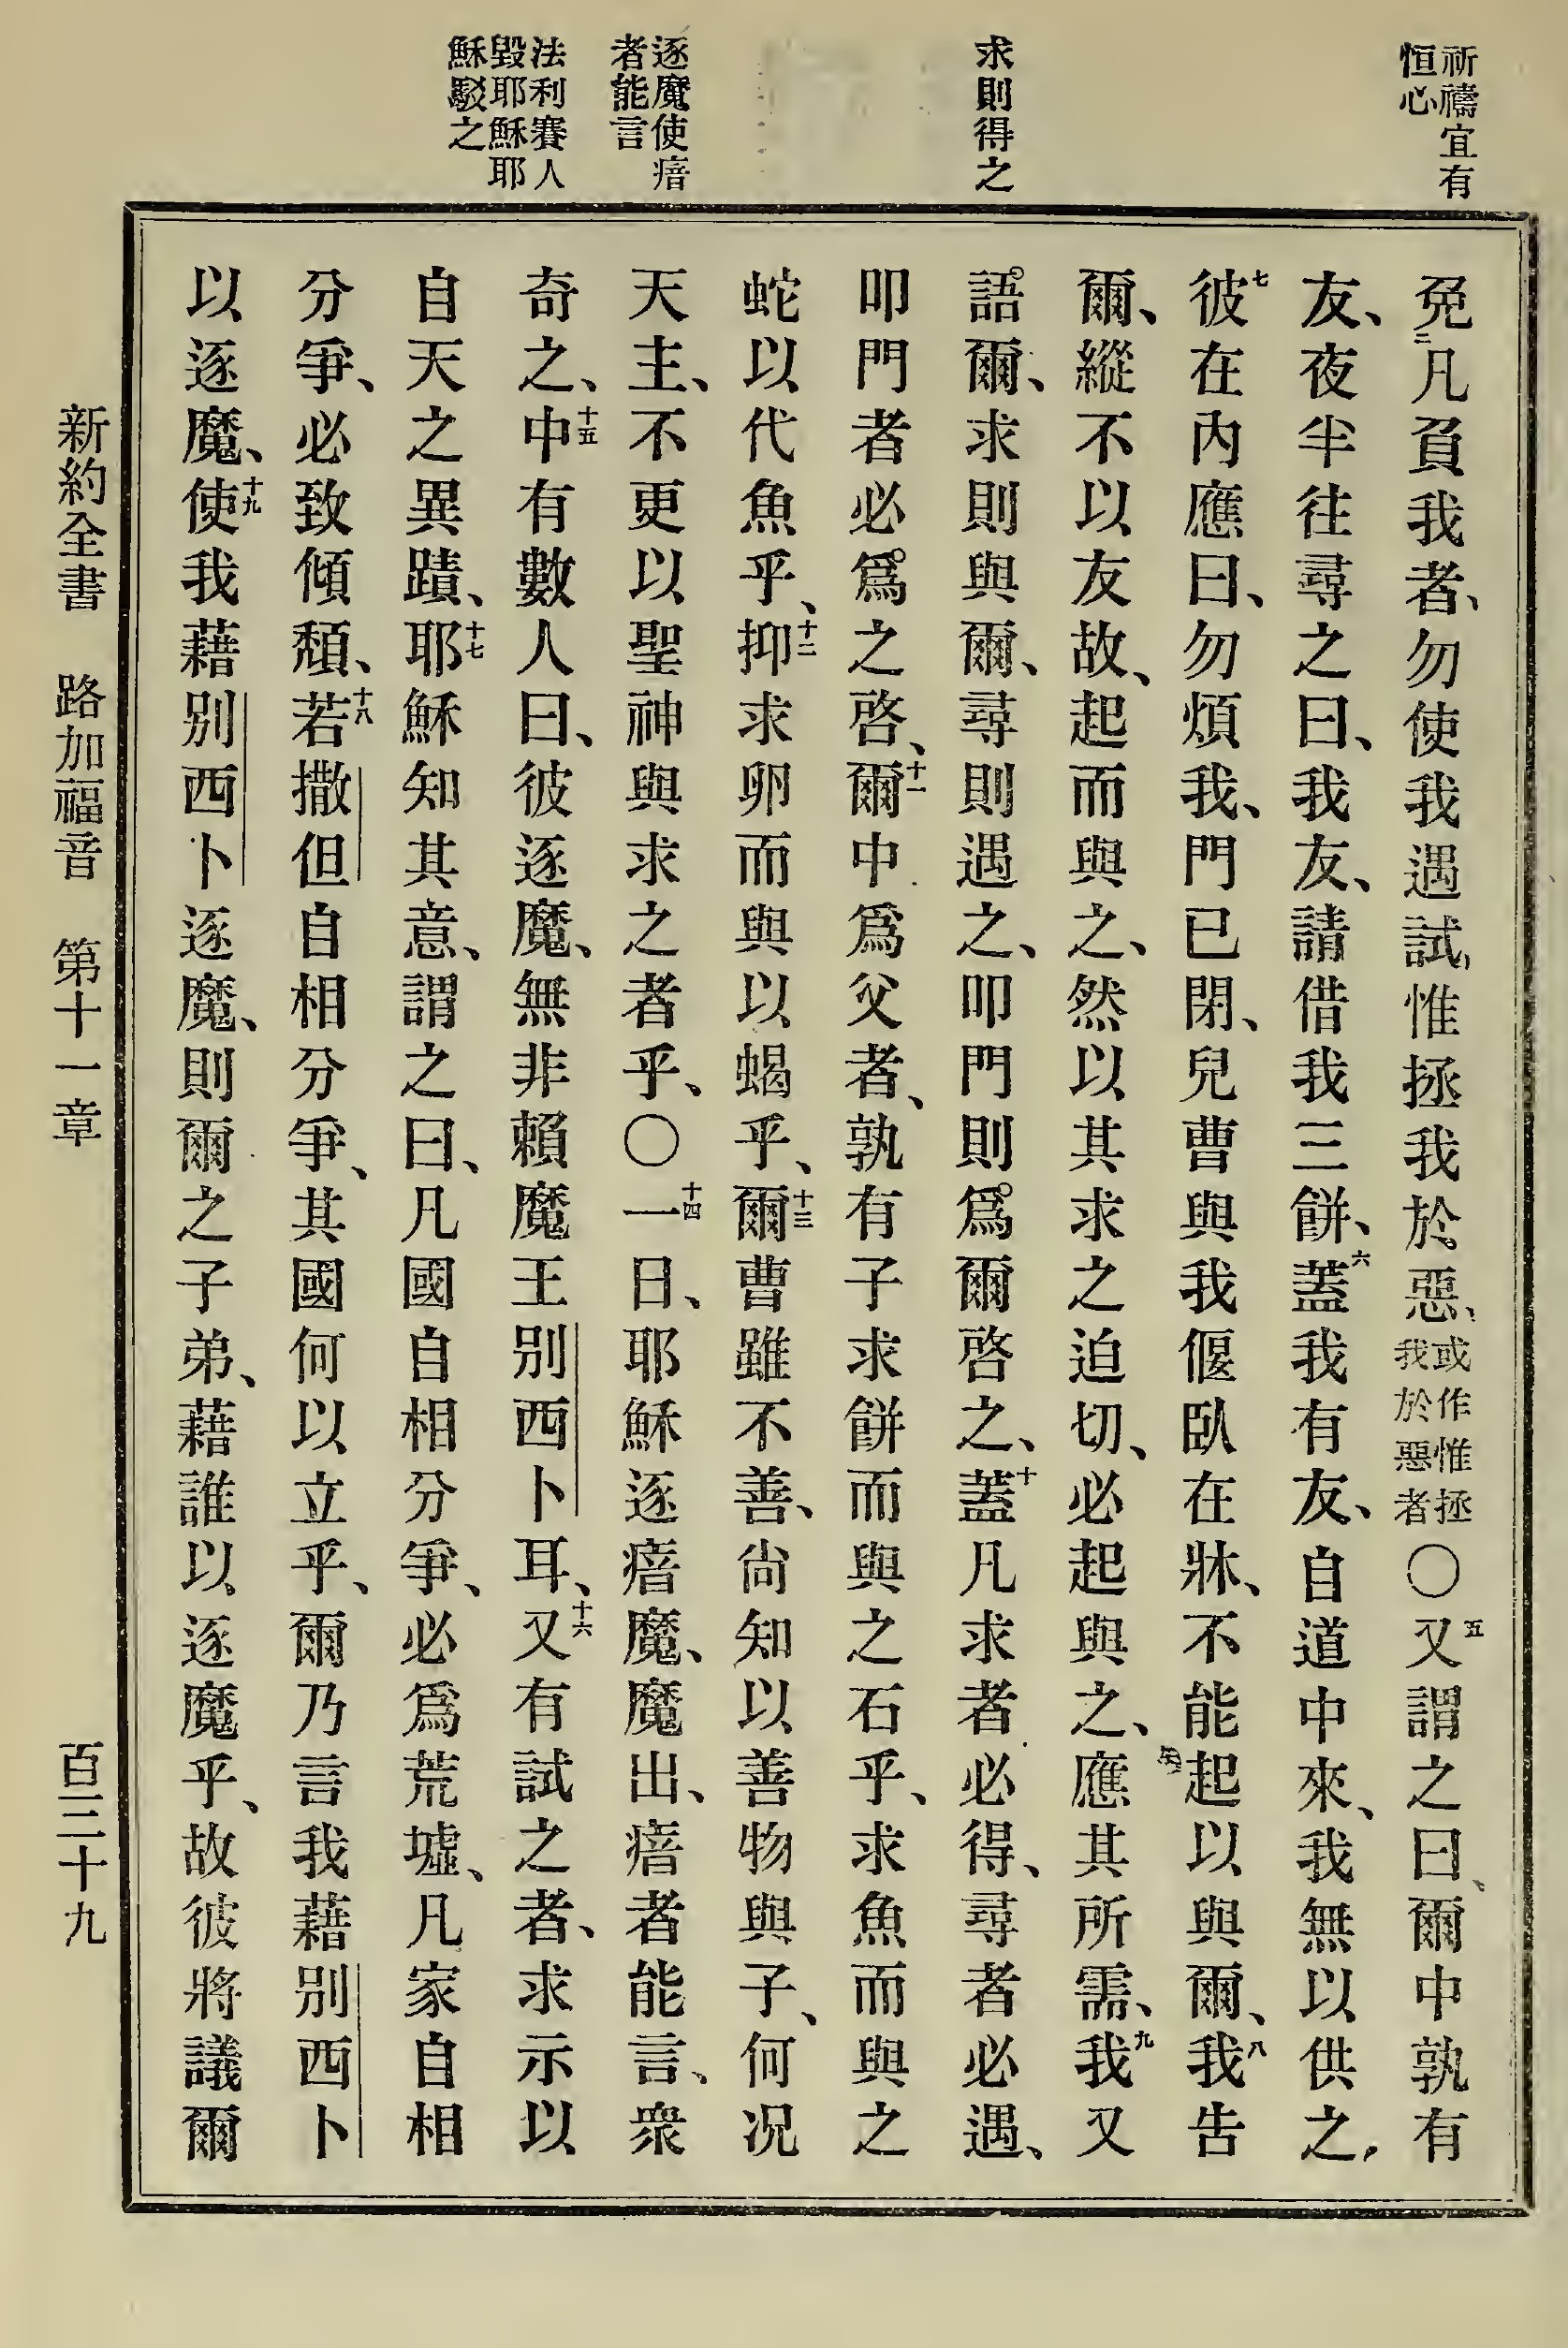 祈禱宜有
恒心
求則得之
逐魔使瘖
者能言
法利賽人
毀耶穌耶
穌駁之
免凡負我者、勿使我遇試、惟拯我於惡、或作惟拯我於惡者〇五又謂之曰、爾中孰有
友、夜半往尋之曰、我友、請借我三餅、六蓋我有友、自道中來、我無以供之、
七彼在內應曰、勿煩我、門已閉、兒曹與我偃臥在牀、不能起以與爾、八我告
爾、縱不以友故、起而與之、然以其求之迫切、必起與之、應其所需、九我又
語爾、求則與爾、尋則遇之、叩門則爲爾啓之、十蓋凡求者必得、尋者必遇、
叩門者必爲之啓、十一爾中爲父者、孰有子求餅而與之石乎、求魚而與之
蛇以代魚乎、十二抑求卵而與以蝎乎、十三爾曹雖不善、尙知以善物與子、何况
天主、不更以聖神與求之者乎、〇十四一日、耶穌逐瘖魔、魔出、瘖者能言、衆
奇之、十五中有數人曰、彼逐魔、無非賴魔王別西卜耳、十六又有試之者、求示以
自天之異蹟、十七耶穌知其意、謂之曰、凡國自相分爭、必爲荒墟、凡家自相
分爭、必致傾頹、十八若撒但自相分爭、其國何以立乎、爾乃言我藉別西卜
以逐魔、十九使我藉別西卜逐魔、則爾之子弟、藉誰以逐魔乎、故彼將議爾
新約全書 路加福音 第十一章 百三十九